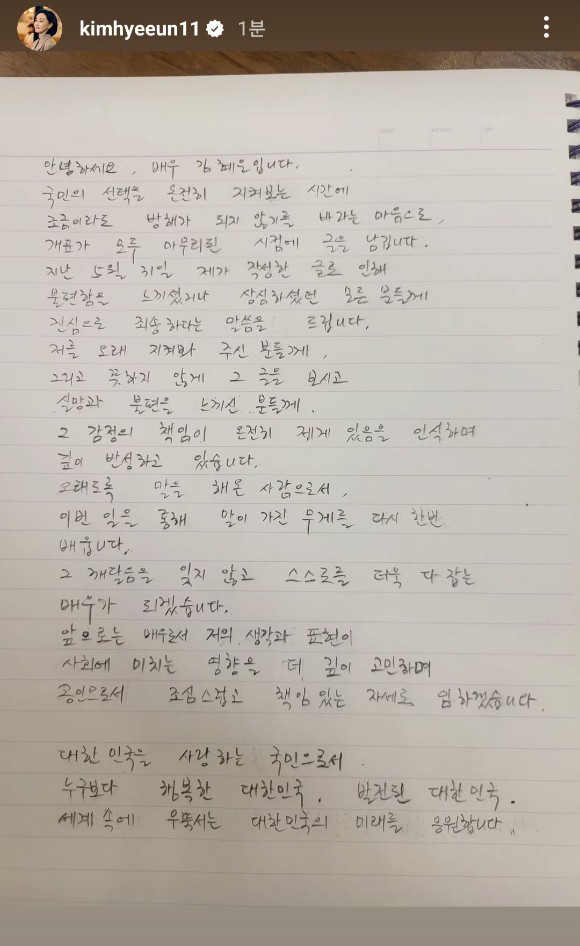 kimhyeeun11 1분
안녕하세요, 배우 김혜은입니다.
국민의 선택을 온전히 지켜보는 시간에
조금이라도 방해가 되지 않기를 바라는 마음으로,
개표가 모두 마무리된 시점에 글을 남깁니다.
지난 5월 31일 제가 작성한 글로 인해
불편함을 느끼셨거나 상심하셨던 모든 분들께
진심으로 죄송하다는 말씀을 드립니다.
저를 오래 지켜봐 주신 분들께,
그리고 뜻하지 않게 그 글을 보시고
실망과 불편을 느끼신 분들께.
그 감정의 책임이 온전히 제게 있음을 인식하며
깊이 반성하고 있습니다.
오래도록 말을 해온 사람으로서,
이번 일을 통해 말이 가진 무게를 다시 한번
배웁니다.
그 깨달음을 잊지 않고 스스로를 더욱 다 잡는
배우가 되겠습니다.
앞으로는 배우로서 저의 생각과 표현이
사회에 미치는 영향을 더 깊이 고민하며
공인으로서 조심스럽고 책임 있는 자세로 임하겠습니다.
대한민국을 사랑하는 국민으로서.
누구보다 행복한 대한민국, 발전된 대한민국.
세계 속에 우뚝서는 대한민국의 미래를 응원합니다.